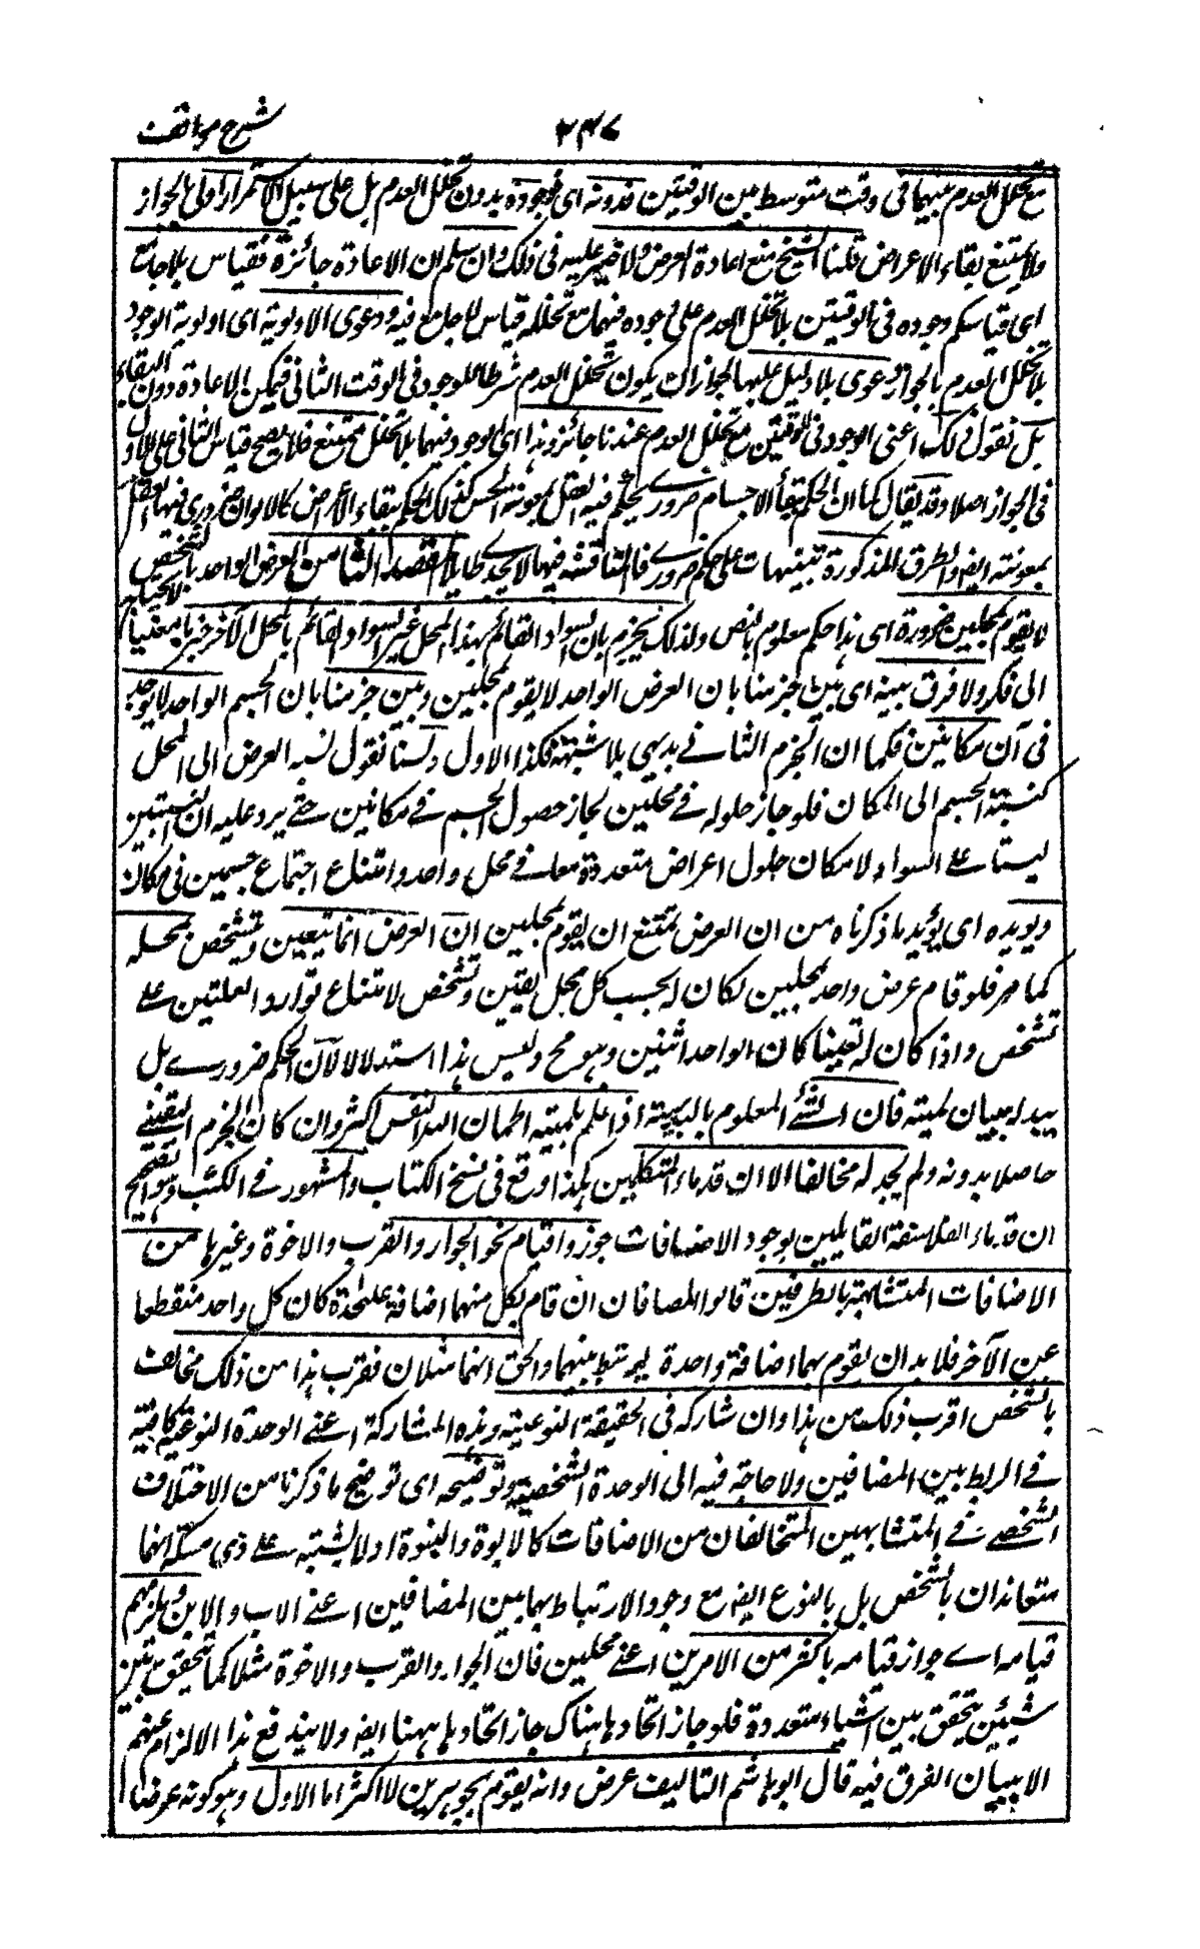 شرح مواقف
٢٤٧
مع تخلل العدم بينهما فى وقت متوسط بين الوقتين فدونه اى فوجوده بدون تخلل العدم بل على سبيل الاستمرار اولى بالجواز
ولا يمتنع بقاء الاعراض قلنا الشيخ منع اعادة العرض ولا ضير عليه فى ذلك وان سلم ان الاعادة جائزة فقياس بلا جامع
اى قياسكم وجوده فى الوقتين بلا تخلل العدم على وجوده فيهما مع تخلله قياس لا جامع فيه ودعوى الاولوية اى اولوية الوجود
بلا تخلل العدم بالجواز دعوى بلا دليل عليها لجواز ان يكون تخلل العدم شرطا للوجود فى الوقت الثانى فيمكن الاعادة دون البقاء
بل نقول ذلك اعنى الوجود فى الوقتين مع تخلل العدم عندنا جائز وهذا اى الوجود فيهما بلا تخلل ممتنع فلا يصح قياس الثانى على الاول
فى الجواز اصلا وقد يقال كما ان الحكم ببقاء الاجسام ضرورى يحكم فيه العقل بمعونة الحس كذلك الحكم ببقاء الاعراض كالالوان ضرورى فيها العقل
بمعونته ايضا والطرق المذكورة تنبيهات على حكم ضرورى فالمناقشة فيها لا تجدى طائلا المقصد الثامن العرض الواحد بالشخص
لا يقوم بمحلين ضرورة اى هذا حكم معلوم بالضرورة ولذلك يجزم بان السواد القائم بهذا المحل غير السواد القائم بالمحل الآخر جزما يقينيا لا يحتاج
الى فكر ولا فرق بينه اى بين جزمنا بان العرض الواحد لا يقوم بمحلين وبين جزمنا بان الجسم الواحد لا يوجد
فى آن مكانين فكما ان الجزم الثانى بديهى بلا شبهة فكذا الاول ولسنا نقول نسبة العرض الى المحل
كنسبة الجسم الى المكان فلو جاز حلوله فى محلين لجاز حصول الجسم فى مكانين حتى يرد عليه ان النسبتين
ليستا على السواء لامكان حلول اعراض متعددة معا فى محل واحد وامتناع اجتماع جسمين فى مكان
ويؤيده اى يؤيد ما ذكرناه من ان العرض يمتنع ان يقوم بمحلين ان العرض انما يتعين ويتشخص بمحله
كما مر فلو قام عرض واحد بمحلين لكان له بحسب كل محل تعين وتشخص لامتناع توارد العلتين على
تشخص واذا كان له تعينا كان الواحد اثنين وهو مح وليس هذا استدلالا لان الحكم ضرورى بل
بيد له ببيان لميته فان الشئ المعلوم بالبديهة اذا علم بلميته اطمأن اليه النفس اكثر وان كان الجزم اليقينى
حاصلا بدونه ولم يجد له مخالفا الا ان قدماء المتكلمين هكذا وقع فى نسخ الكتاب والمشهور فى الكتب وهو الصحيح
ان قدماء الفلاسفة القايلين بوجود الاضافات جوزوا قيام نحو الجوار والقرب والاخوة وغيرها من
الاضافات المتشابهة بالطرفين قالوا المضافان ان قام بكل منهما اضافة علىحدة كان كل واحد منقطعا
عن الآخر فلا بد ان يقوم بهما اضافة واحدة ليرتبط بينهما والحق انهما مثلان فقرب هذا من ذلك مخالف
بالشخص لقرب ذلك من هذا وان شاركه فى الحقيقة النوعية وهذه المشاركة اعنى الوحدة النوعية كافية
فى الربط بين المضافين ولا حاجة فيه الى الوحدة الشخصية وتوضيحه اى توضيح ما ذكرنا من الاختلاف
الشخصى فى المتشابهين المتخالفان من الاضافات كالابوة والبنوة اذ لا يشتبه على ذى مسكة انهما
متغائران بالشخص بل بالنوع ايضا مع وجود الارتباط بهما بين المضافين اعنى الاب والابن ويلزمهم
قيامه اى جواز قيامه باكثر من الامرين اعنى محلين فان الجوار والقرب والاخوة مثلا كما تتحقق بين
شيئين يتحقق بين اشياء متعددة فلو جاز اتحادها هناك جاز اتحادها ههنا ايضا ولا يندفع هذا الالزام عنهم
الا ببيان الفرق فيه قال ابو هاشم التاليف عرض وانه يقوم بجوهرين لا اكثر اما الاول وهو كونه عرضا